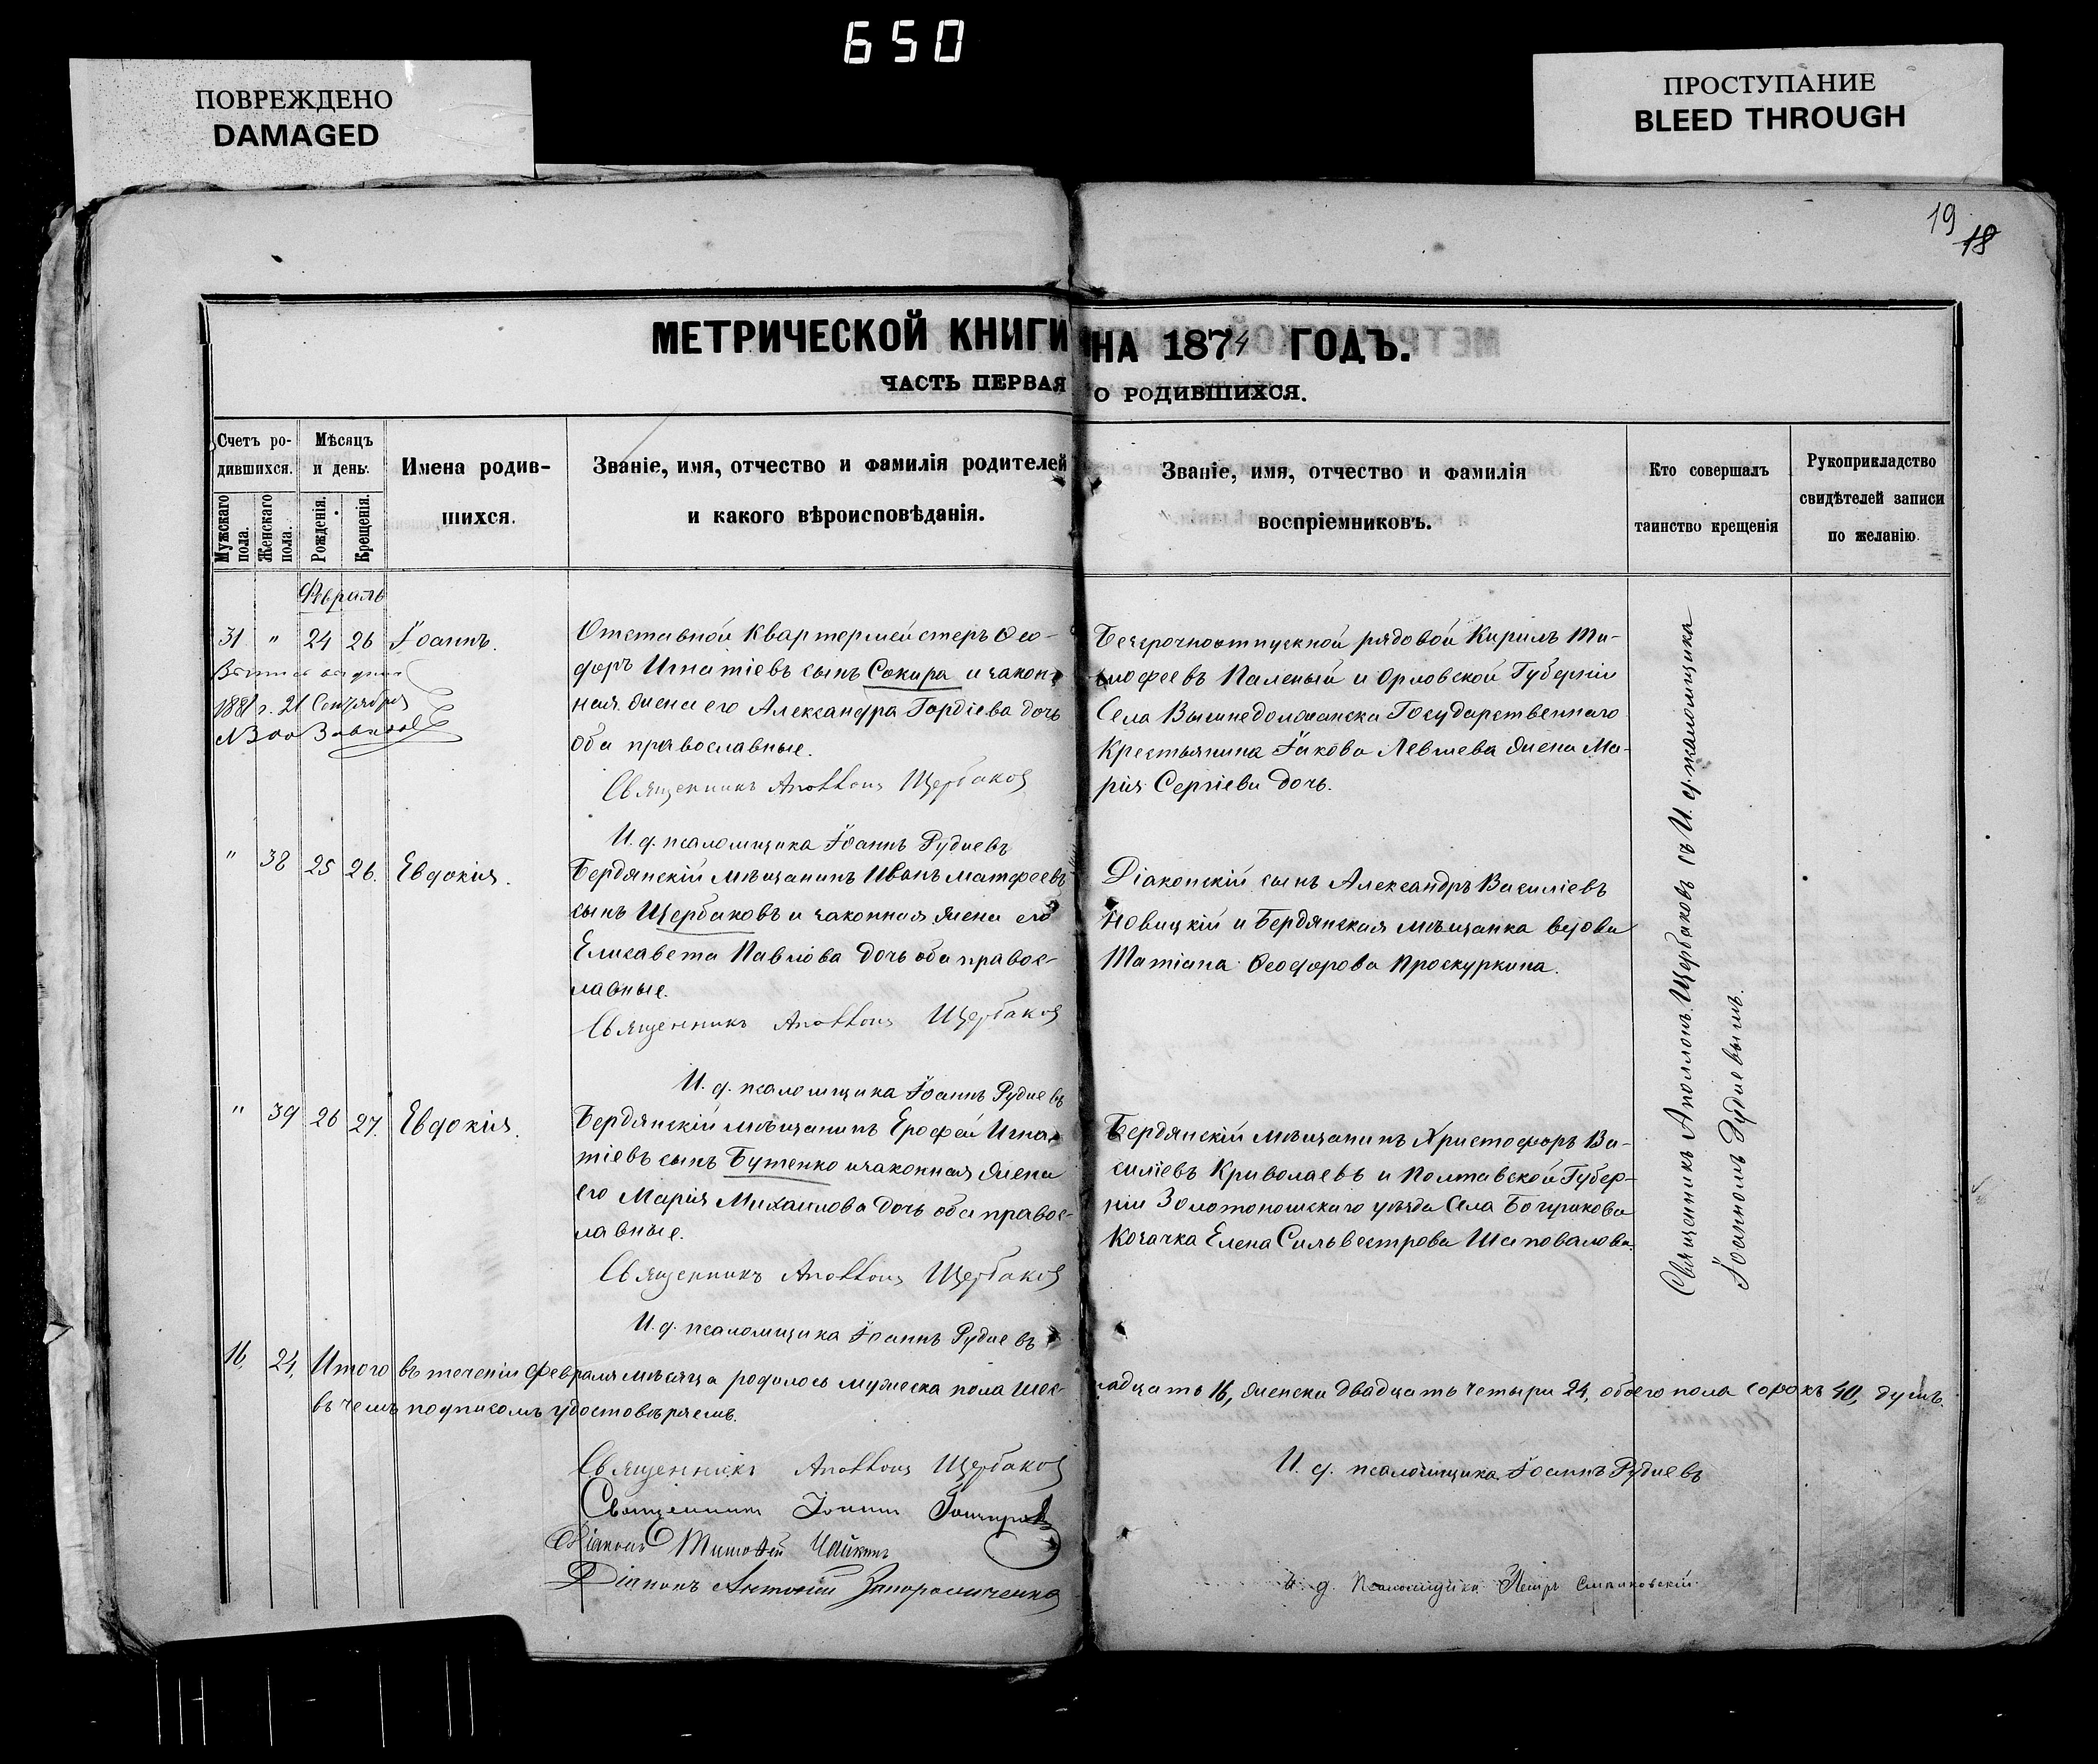 650
ПОВРЕЖДЕНО
DAMAGED
ПРОСТУПАНИЕ
BLEED THROUGH
19
18
МЕТРИЧЕСКОЙ КНИГИ НА 1874 ГОДЪ.
ЧАСТЬ ПЕРВАЯ О РОДИВШИХСЯ.
Счетъ ро-
дившихся.
Мужскаго пола.
Женскаго пола.
Мѣсяцъ
и день.
Рожденія.
Крещенія.
Имена родив-
шихся.
Званіе, имя, отчество и фамилія родителей
и какого вѣроисповѣданія.
Званіе, имя, отчество и фамилія
воспріемниковъ.
Кто совершалъ
таинство крещенія
Рукоприкладство
свидѣтелей записи
по желанію.
31 " 24 26 Іоаннъ.
1881 г. 21 Сентября
Отставной Квартермейстеръ Ѳео-
доръ Игнатіевъ сынъ Сокира и закон-
ная жена его Александра Гордіева дочь
оба православные.
Священникъ Аполлонъ Щербаковъ
И. д. псаломщика Іоаннъ Рудиевъ
Безсрочноотпускной рядовой Кирилъ Ти-
мофеевъ Паленый и Орловской Губерніи
Села Вышнедолжанска Государственнаго
Крестьянина Іакова Левшева жена Ма-
рія Сергіева дочь.
" 38 25 26. Евдокія.
Бердянскій мѣщанинъ Иванъ Матфеевъ
сынъ Щербаковъ и законная жена его
Елисавета Павлова дочь оба правос-
лавные.
Священникъ Аполлонъ Щербаковъ
И. д. псаломщика Іоаннъ Рудиевъ
Діаконскій сынъ Александръ Василіевъ
Новицкій и Бердянская мѣщанка вдова
Татіана Ѳеодорова Проскуркина.
" 39 26 27. Евдокія.
Бердянскій мѣщанинъ Ерофей Игна-
тіевъ сынъ Бутенко и законная жена
его Марія Михаилова дочь оба правос-
лавные.
Священникъ Аполлонъ Щербаковъ
И. д. псаломщика Іоаннъ Рудиевъ
Бердянскій мѣщанинъ Христофоръ Ва-
силіевъ Криволаевъ и Полтавской Губер-
ніи Золотоношскаго уѣзда Села Богушкова
Козачка Елена Сильвестрова Шаповалова.
Священникъ Аполлонъ Щербаковъ съ И. д. псаломщика
Іоанномъ Рудиевымъ.
16, 24, Итого въ теченіи Февраля мѣсяца родилось мужеска пола шес-
надцать 16, женска двадцать четыри 24, обоего пола сорокъ 40, душъ.
въ чемъ подписомъ удостовѣряемъ.
Священникъ Аполлонъ Щербаковъ
Священникъ Іоаннъ Гончаровъ
Діаконъ Тимофей Чайкинъ
Діаконъ Антоній
И. д. псаломщика Іоаннъ Рудиевъ
И. д. Псаломщика Петръ